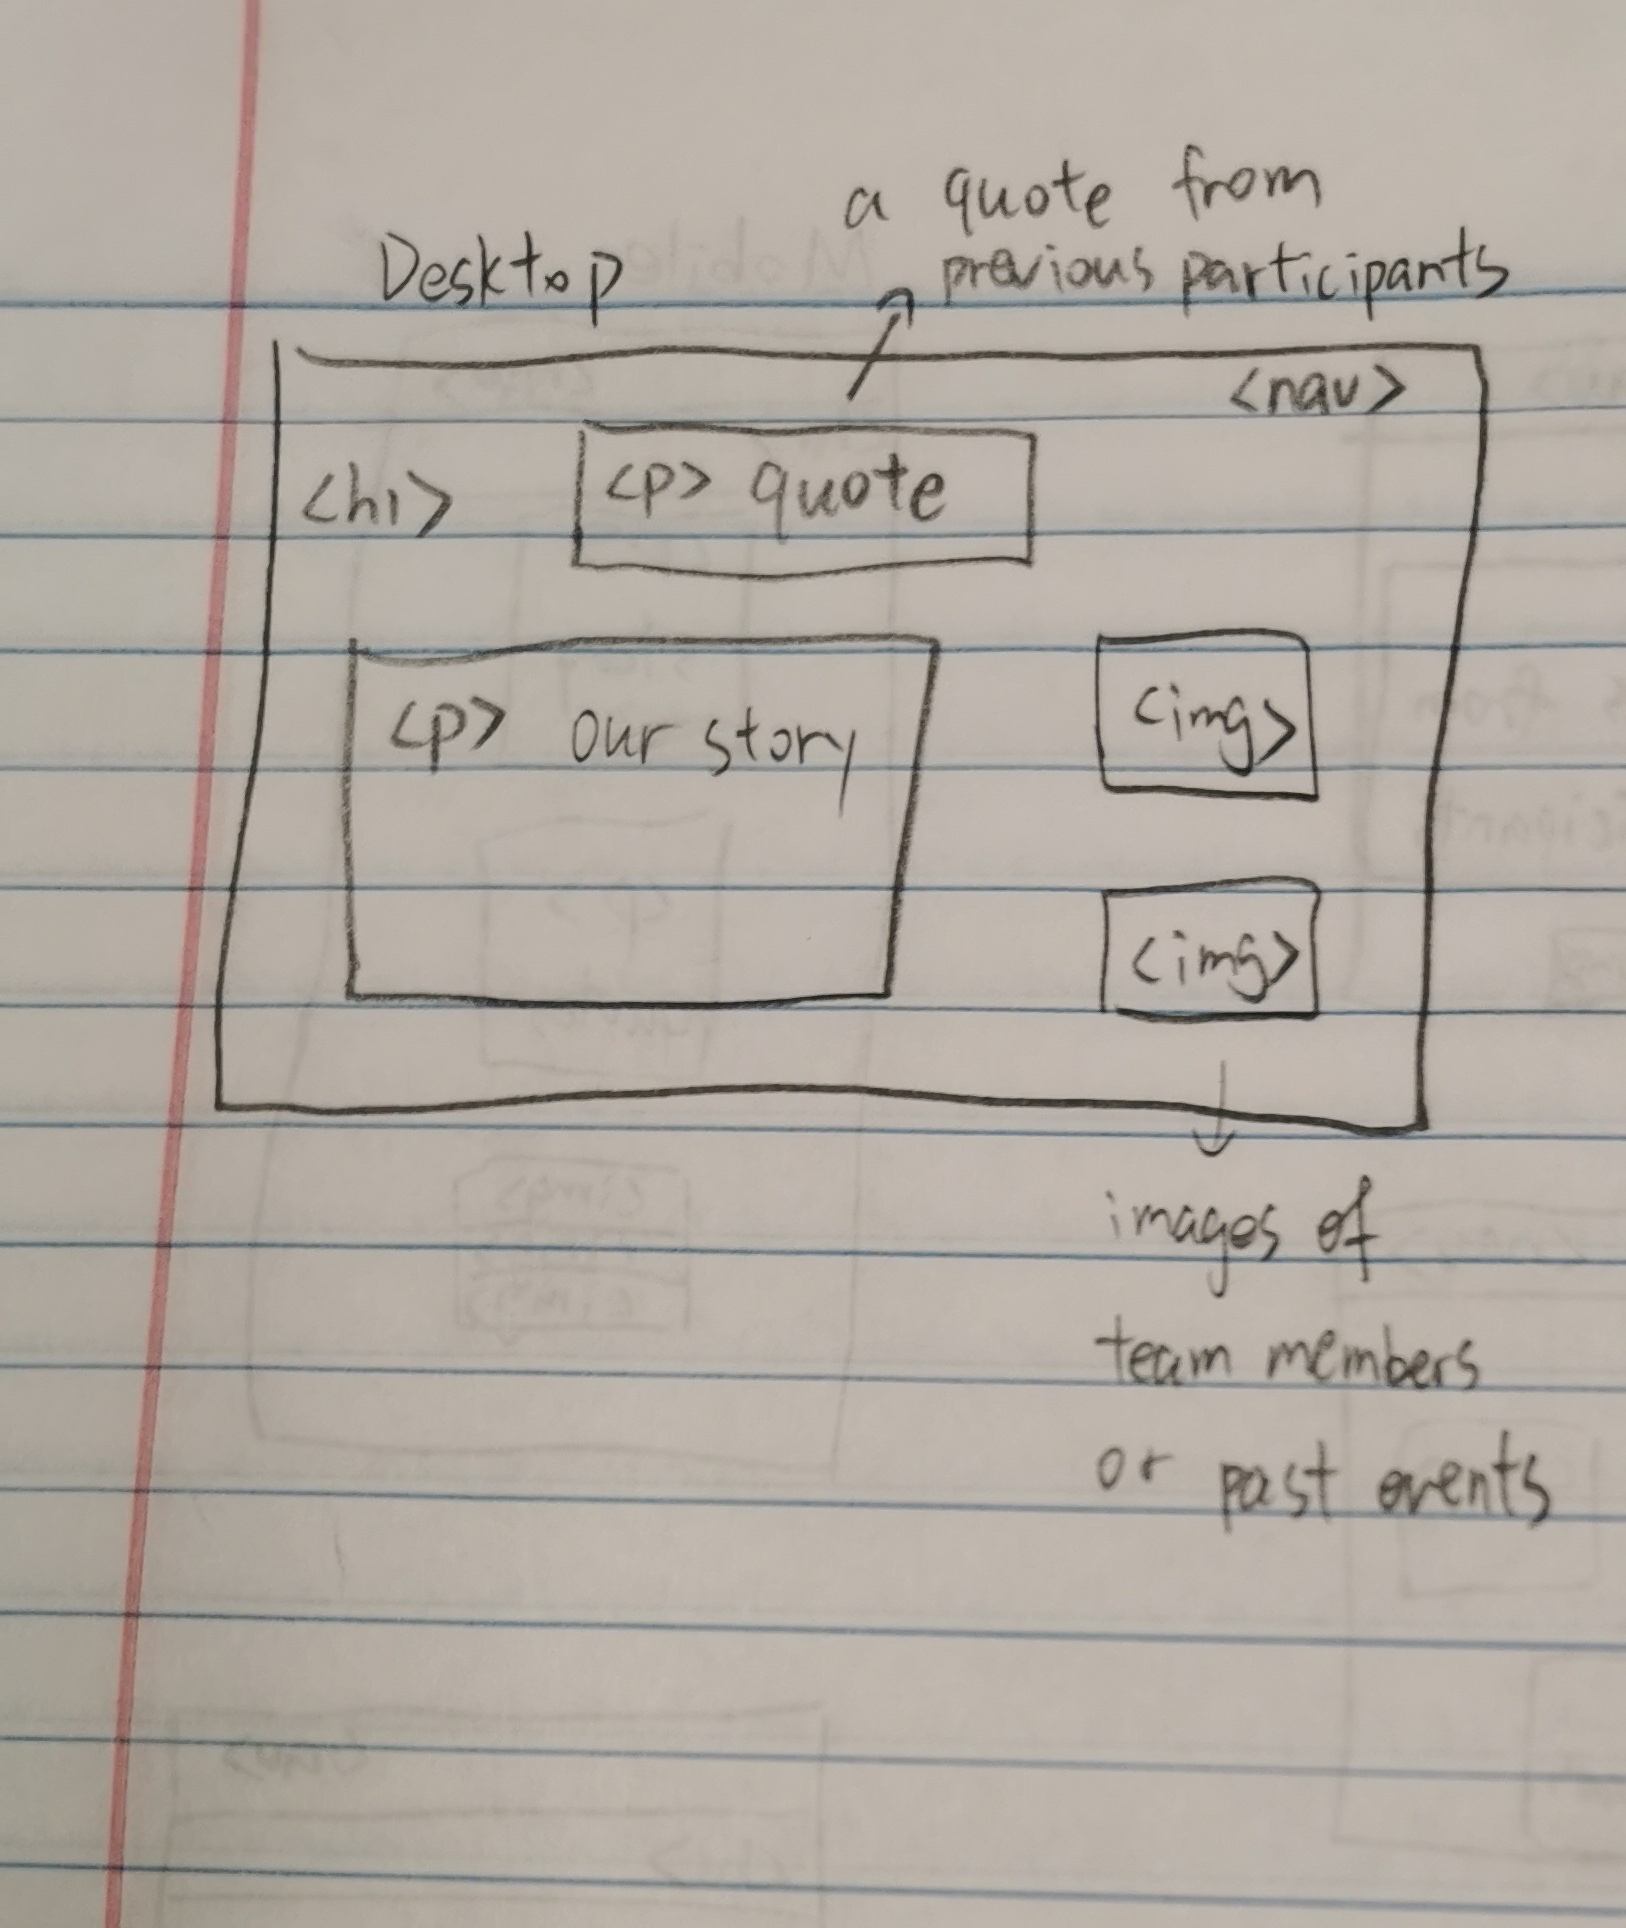 a quote from
Desktop previous participants
<nav>
<h1> <p> quote
<p> our story <img>
<img>
images of
team members
or past events